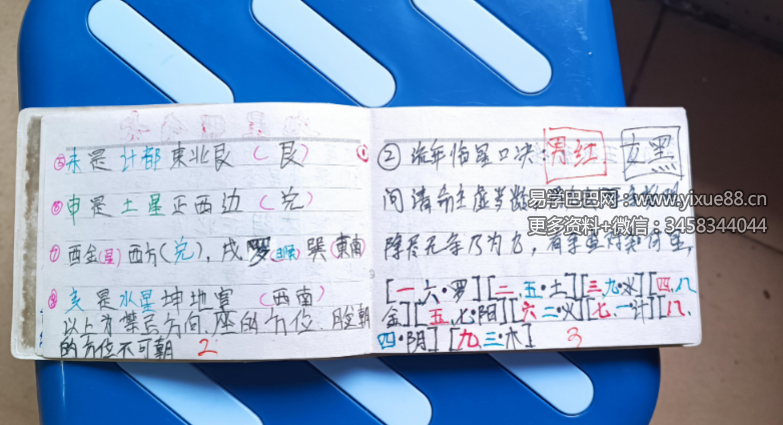 ⑤未是计都東北艮(艮)
⑥申是土星正西边(兑)
⑦酉金(星)西方(兑),戌罗巽(東南)
⑧亥是水星坤地宫(西南)
以上为禁忌方向,座的方位
的方位不可朝 2
① ② 流年
男红 女黑
问清命主虚岁数
除尽无余乃为九,
[一六·罗][二、五·土][三、九·水][四、八
金][五、七·阳][六二·火][七、一计][八、
四·阴][九、三·木] 3
易学巴巴网:www.yixue88.cn
更多资料+微信:3458344044